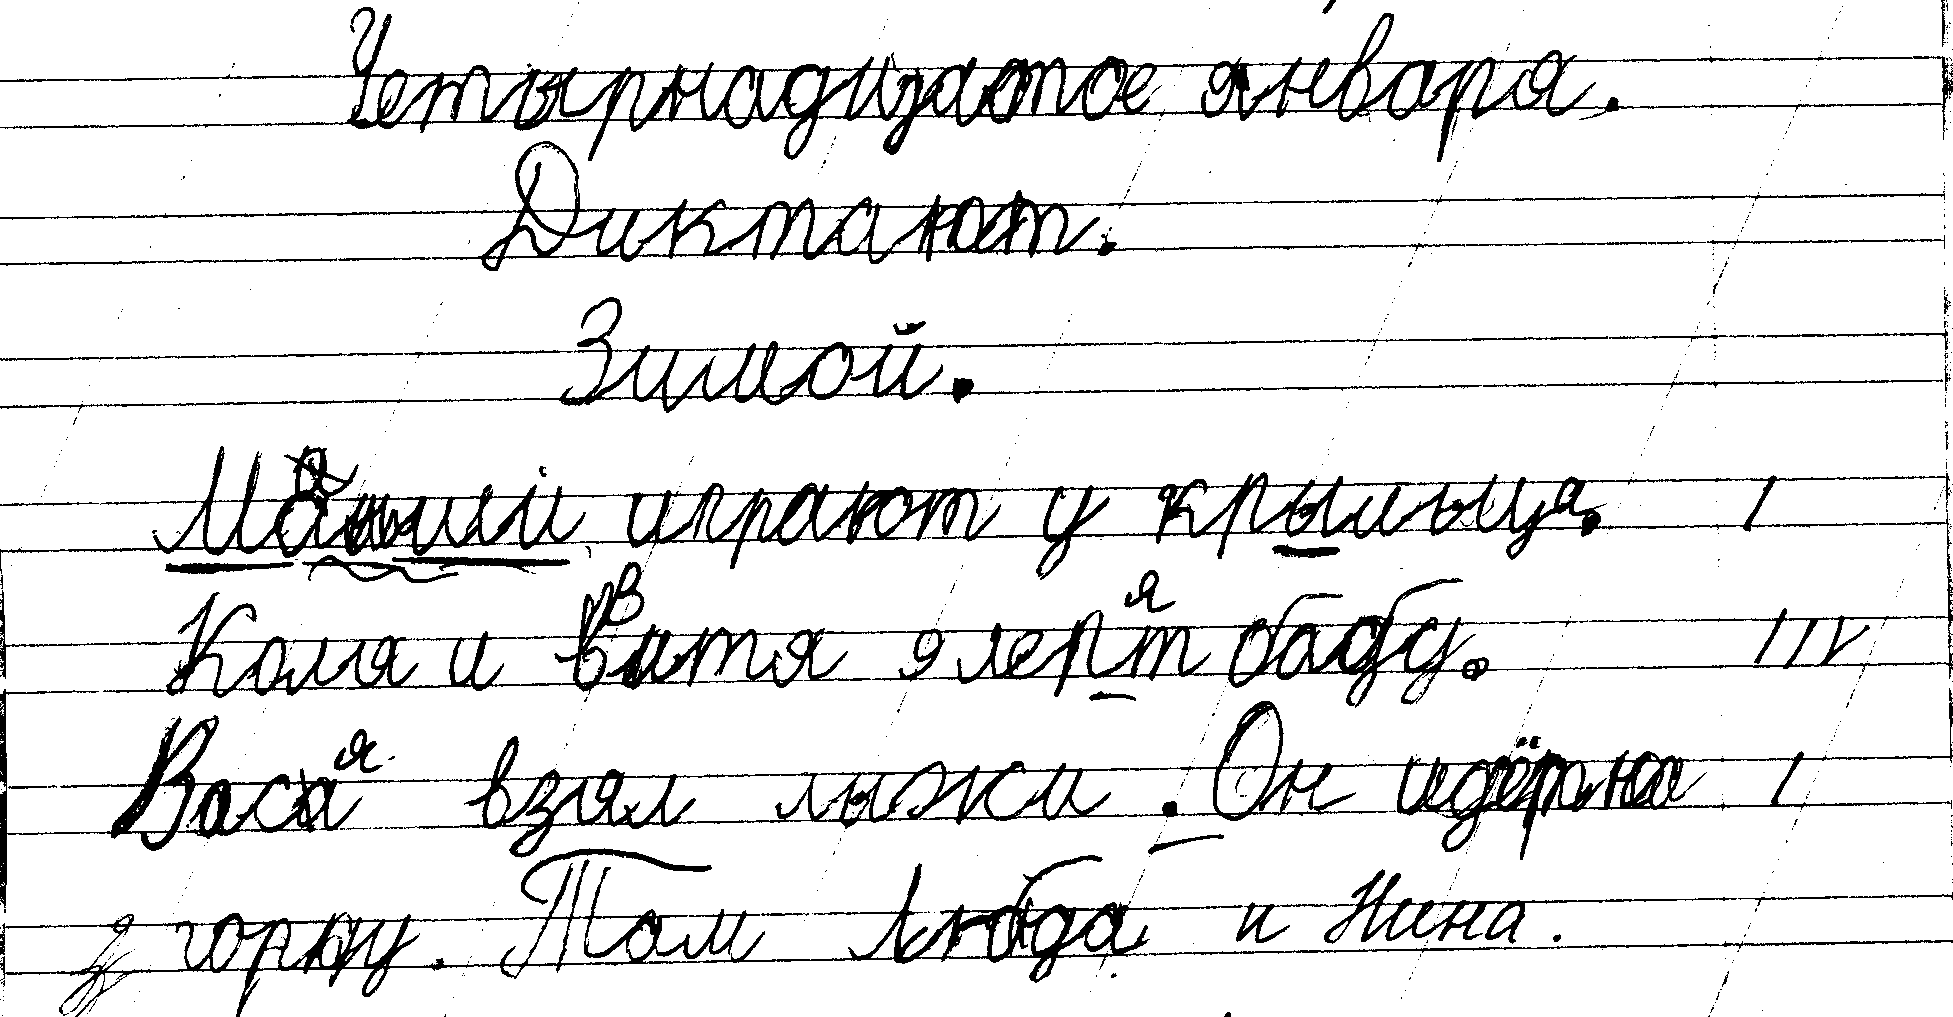 Четырнадцатое января.
Диктант.
Зимой.
играют у крыльця.
Коля и Витя элепят бабу.
Вася взял лыжи. Он идёт на
горку. Там Люба и Нина.